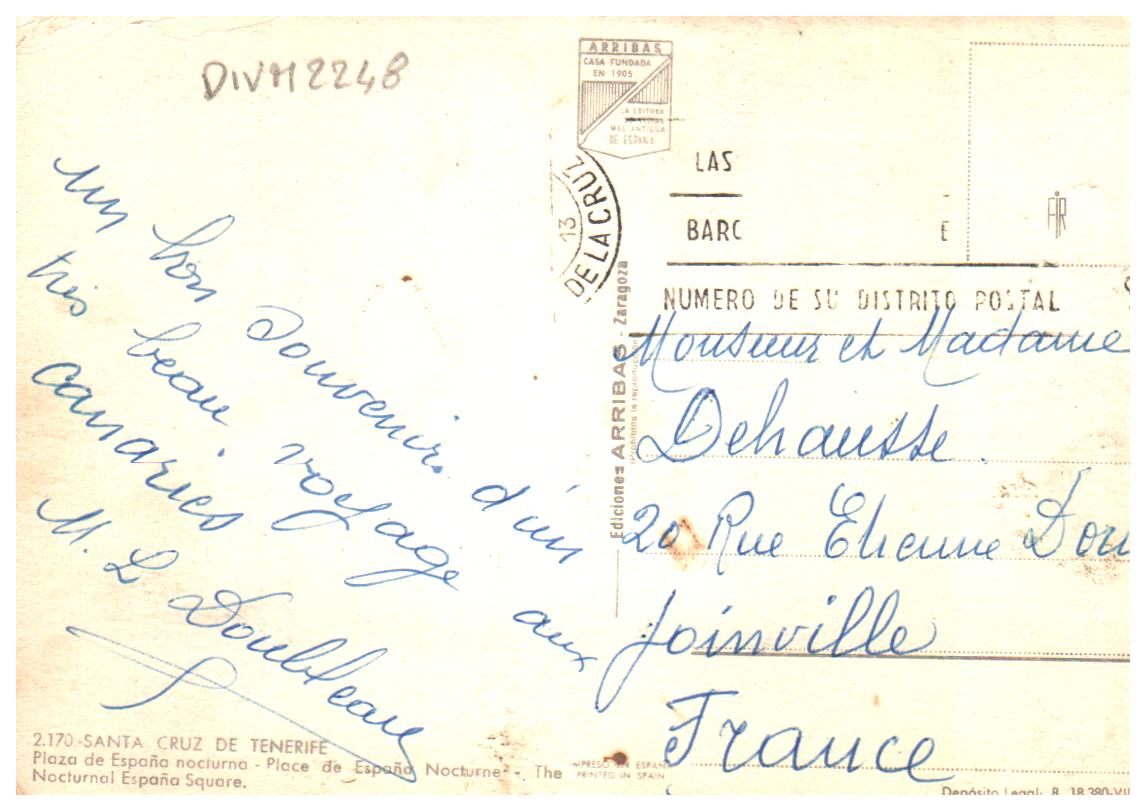 DIVM2248
ARRIBAS
CASA FUNDADA
EN 1905
LA EDITORA
MAS ANTIGUA
DE ESPAÑA
un bon souvenir d'un
très beau voyage aux
canaries
M. L Doubleau
DE LA CRUZ
13
LAS
BARC E
NUMERO DE SU DISTRITO POSTAL
FIR
Ediciones ARRIBAS - Zaragoza
Prohibida la reproducción
Monsieur et Madame
Dehausse.
20 Rue Etienne
Joinville
France
2.170.-SANTA CRUZ DE TENERIFE
Plaza de España nocturna - Place de España Nocturne - The
Nocturnal España Square.
IMPRESO EN ESPAÑA
PRINTED IN SPAIN
Depósito Legal: B. 18.380-VII